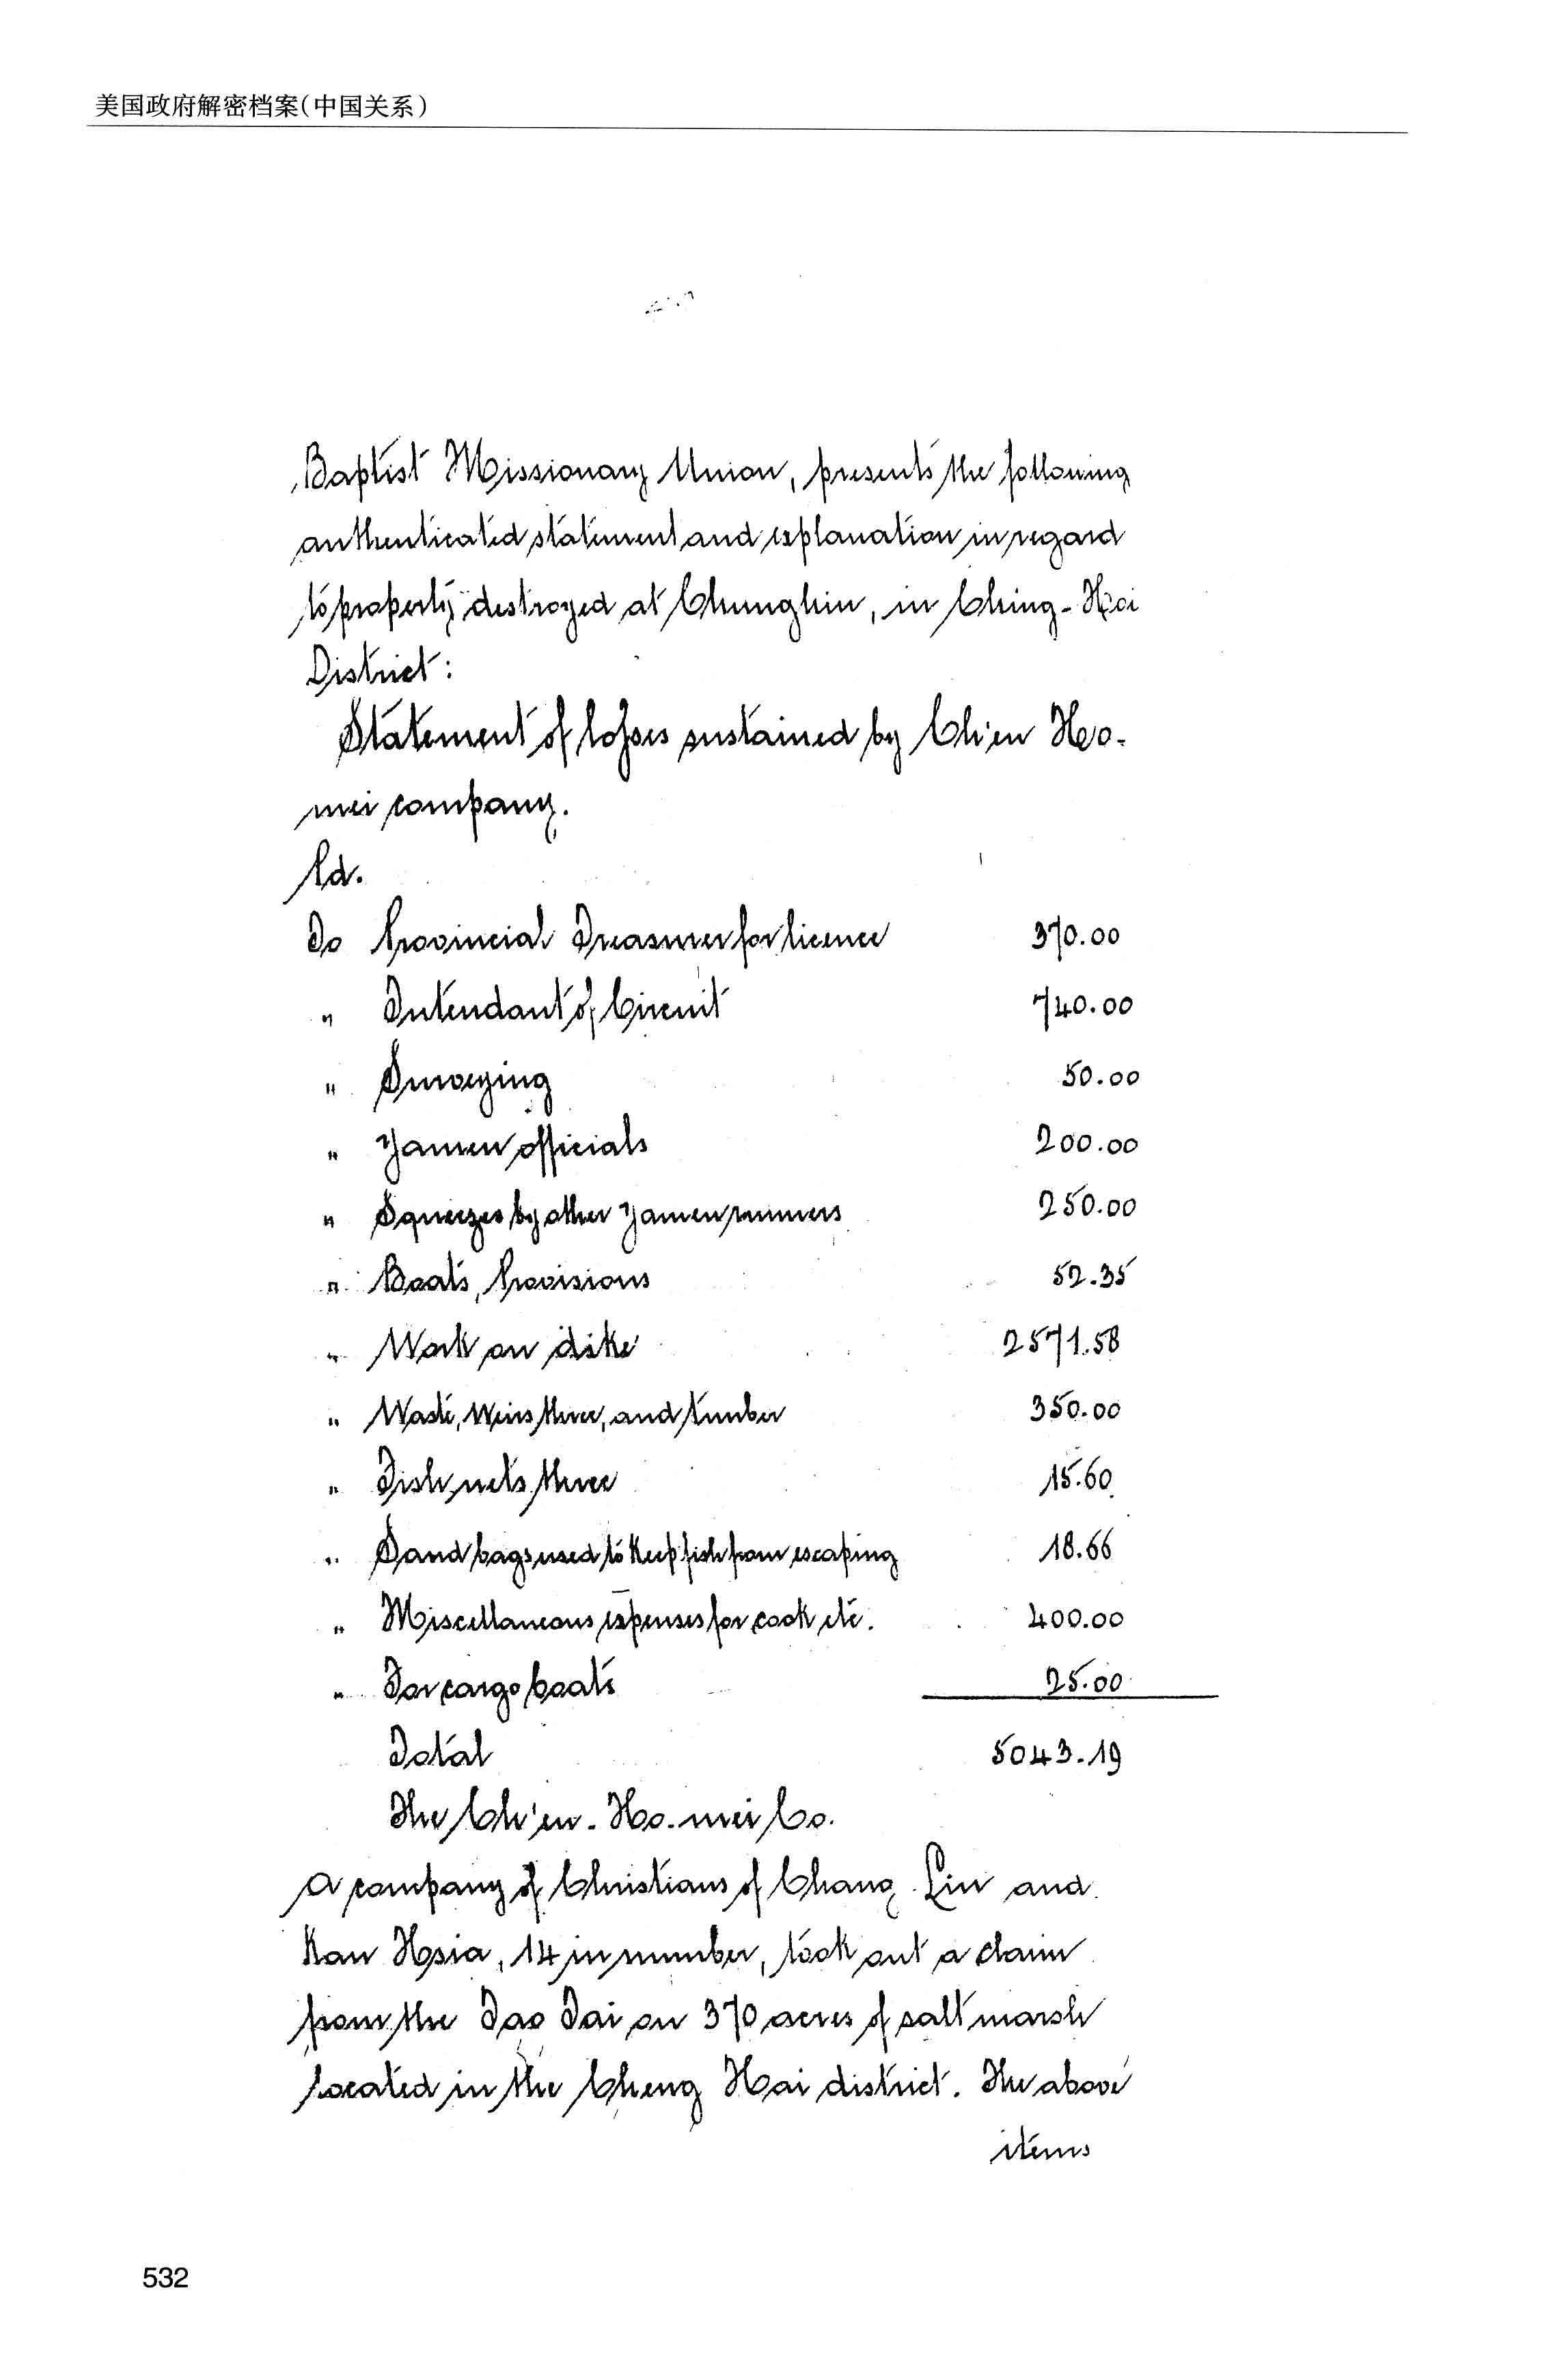 美国政府解密档案(中国关系)
Baptist Missionary Union, presents the following
authenticated statement and explanation in regard
to property destroyed at Chunghin, in Ching-Hai
District:
Statement of losses sustained by Ch'ien Ho-
mei company.
Ld.
To Provincial Treasurer for licence 370.00
" Intendant of Circuit 740.00
" Surveying 50.00
" Yamen officials 200.00
" Squeezes by other Yamen runners 250.00
" Boats, Provisions 52.35
" Work on dike 2571.58
" Waste, Weirs three, and timber 350.00
" Fish nets three 15.60
" Sand bags used to keep fish from escaping 18.66
" Miscellaneous expenses for cook etc. 400.00
" For cargo boats 25.00
Total 5043.19
The Ch'en-Ho-mei Co.
A company of Christians of Chang Lin and
Kan Hsia, 14 in number, took out a claim
from the Tao Tai on 370 acres of salt marsh
located in the Cheng Hai district. The above
items
532